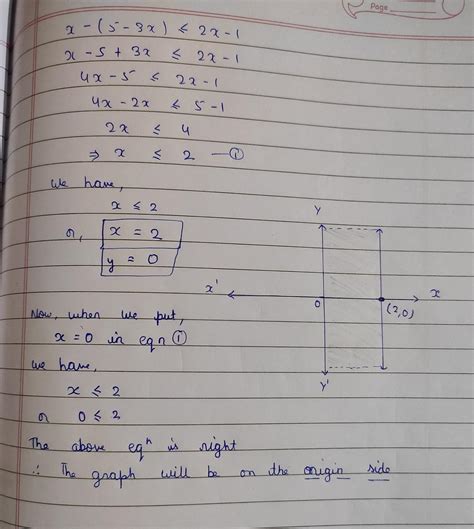 Page
x - (5 - 3x) ≤ 2x - 1
x - 5 + 3x ≤ 2x - 1
4x - 5 ≤ 2x - 1
4x - 2x ≤ 5 - 1
2x ≤ 4
⇒ x ≤ 2 — ①
we have,
x ≤ 2
or, x = 2
y = 0
Y
x' 0 (2,0) x
Y'
Now, when we put,
x = 0 in eqn ①
we have,
x ≤ 2
or 0 ≤ 2
The above eqⁿ is right
∴ The graph will be on the origin side